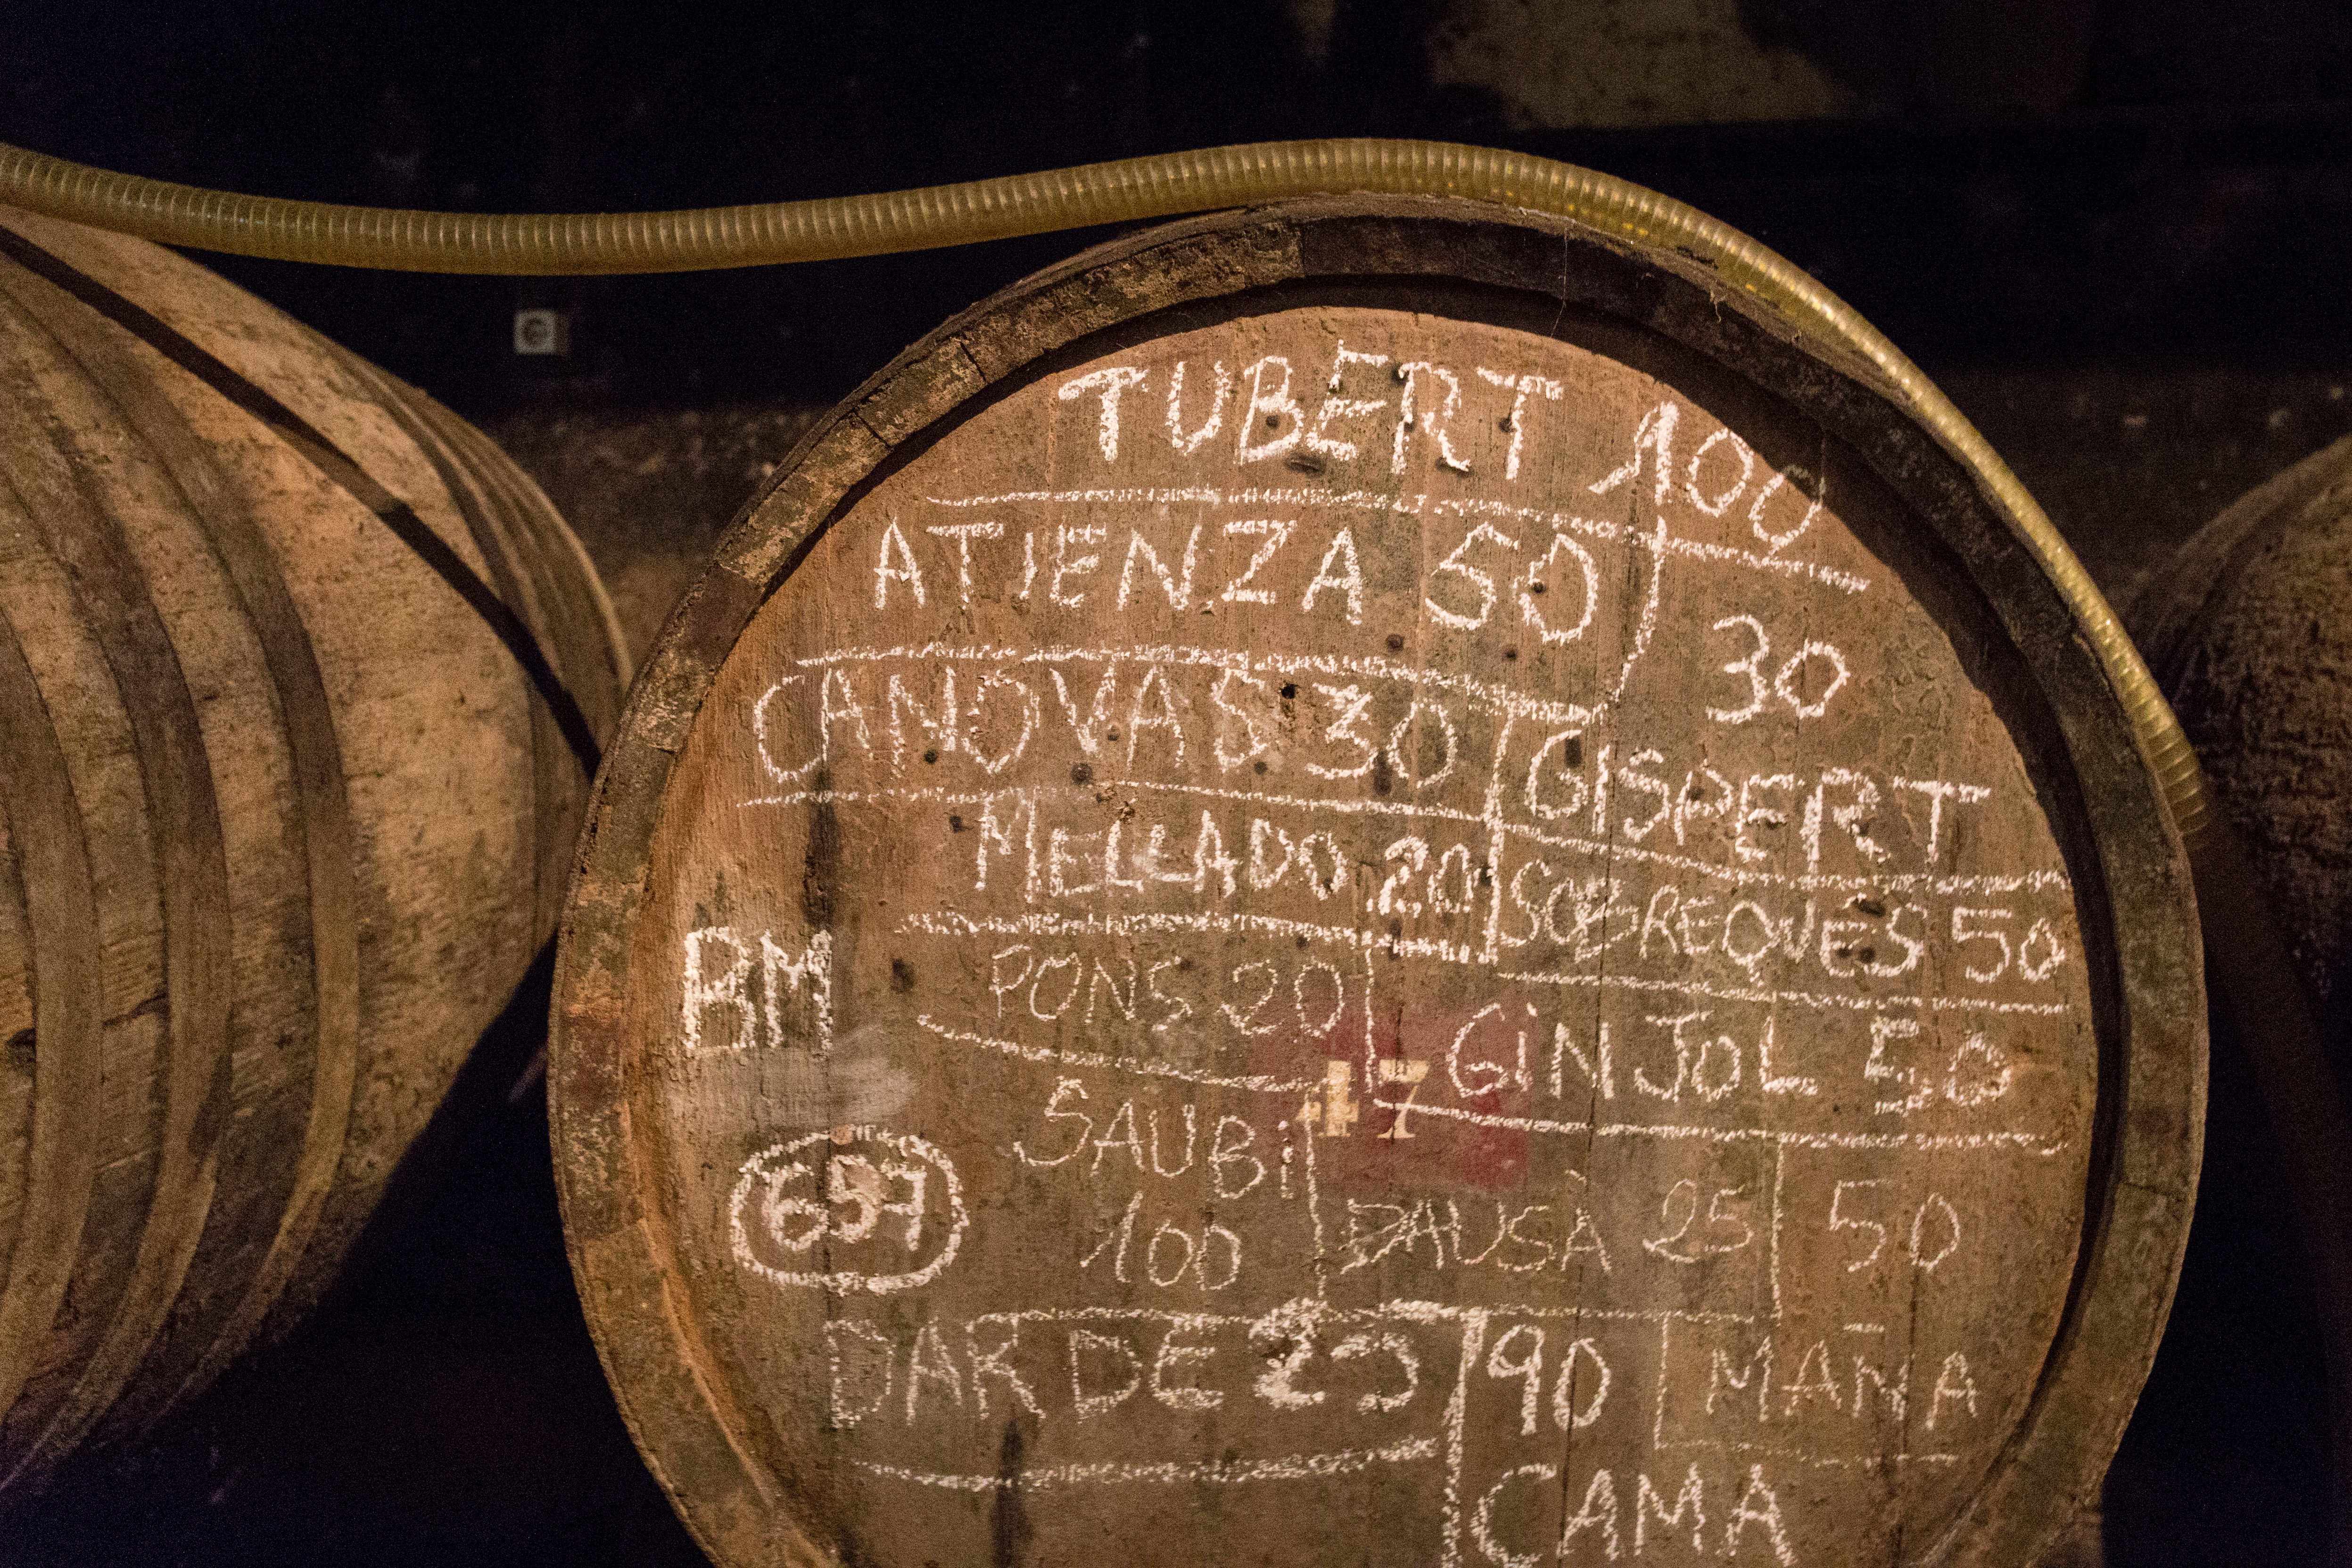 TUBERT 100
ATIENZA 50
30
GISPERT
CANOVAS 30
MELLADO 20
SOBREQUÉS 50
BM
PONS 20
GiNJOL 50
47
SAUBi
100
657
DAUSÀ 25
50
MAÑA
DARDE 25
90
CAMA